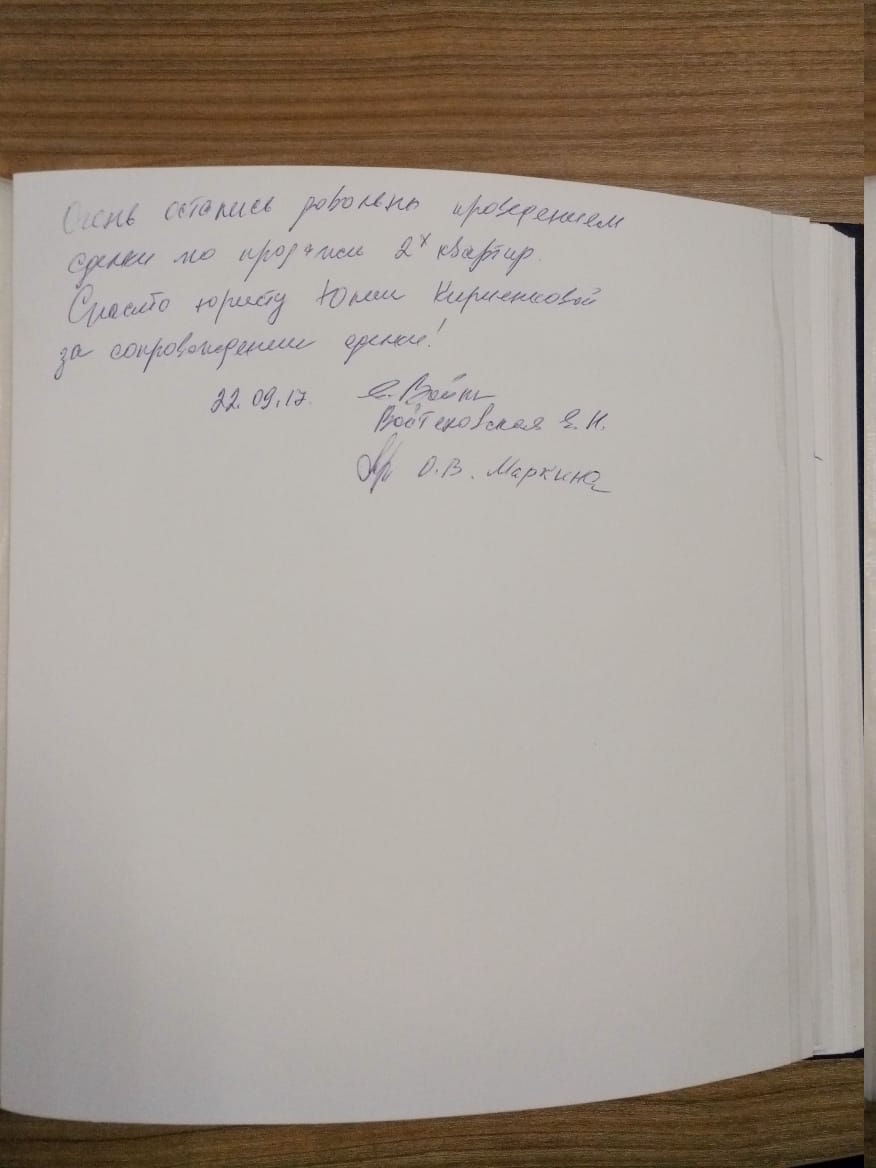 Очень остались довольны проведением
сделки по продаже 2х квартир.
Спасибо юристу Юлии Кириенковой
за сопровождение сделки!
22.09.17.
Войтеховская Е. Н.
О.В. Маркина